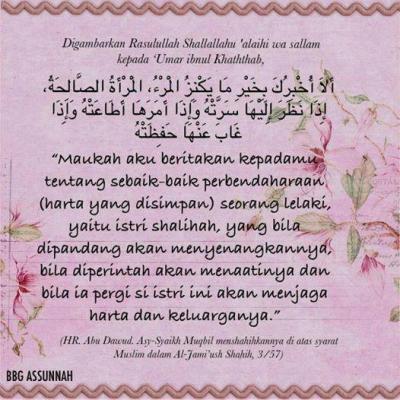 Digambarkan Rasulullah Shallallahu 'alaihi wa sallam
kepada 'Umar ibnul Khaththab,
أَلَا أُخْبِرُكَ بِخَيْرِ مَا يَكْنِزُ الْمَرْءُ، الْمَرْأَةُ الصَّالِحَةُ،
إِذَا نَظَرَ إِلَيْهَا سَرَّتْهُ وَإِذَا أَمَرَهَا أَطَاعَتْهُ وَإِذَا
غَابَ عَنْهَا حَفِظَتْهُ
“Maukah aku beritakan kepadamu
tentang sebaik-baik perbendaharaan
(harta yang disimpan) seorang lelaki,
yaitu istri shalihah, yang bila
dipandang akan menyenangkannya,
bila diperintah akan menaatinya dan
bila ia pergi si istri ini akan menjaga
harta dan keluarganya.”
(HR. Abu Dawud. Asy-Syaikh Muqbil menshahihkannya di atas syarat
Muslim dalam Al-Jami'ush Shahih, 3/57)
BBG ASSUNNAH